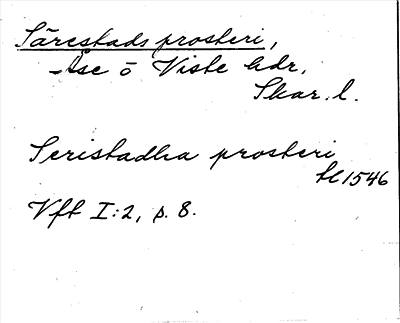 Särestads prosteri,
Åse o Viste hdr.
Skar. l.
Seristadha prosteri
tl 1546
Vft I:2, p. 8.